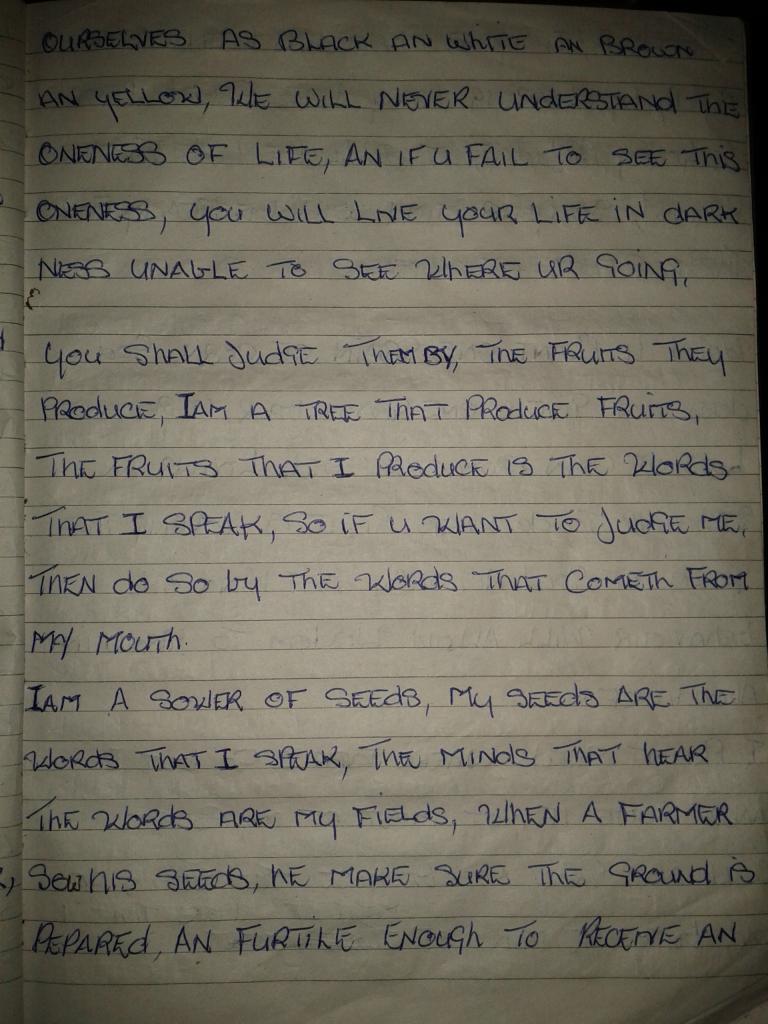 OURSELVES AS BLACK AN WHITE AN BROWN
AN YELLOW, WE WILL NEVER UNDERSTAND THE
ONENESS OF LIFE, AN IF U FAIL TO SEE THIS
ONENESS, YOU WILL LIVE YOUR LIFE IN DARK
NESS UNABLE TO SEE WHERE UR GOING,
YOU SHALL JUDGE THEM BY, THE FRUITS THEY
PRODUCE, I AM A TREE THAT PRODUCE FRUITS,
THE FRUITS THAT I PRODUCE IS THE WORDS
THAT I SPEAK, SO IF U WANT TO JUDGE ME,
THEN DO SO BY THE WORDS THAT COMETH FROM
MY MOUTH.
I AM A SOWER OF SEEDS, MY SEEDS ARE THE
WORDS THAT I SPEAK, THE MINDS THAT HEAR
THE WORDS ARE MY FIELDS, WHEN A FARMER
SEW HIS SEEDS, HE MAKE SURE THE GROUND IS
PEPARED, AN FURTILE ENOUGH TO RECEIVE AN